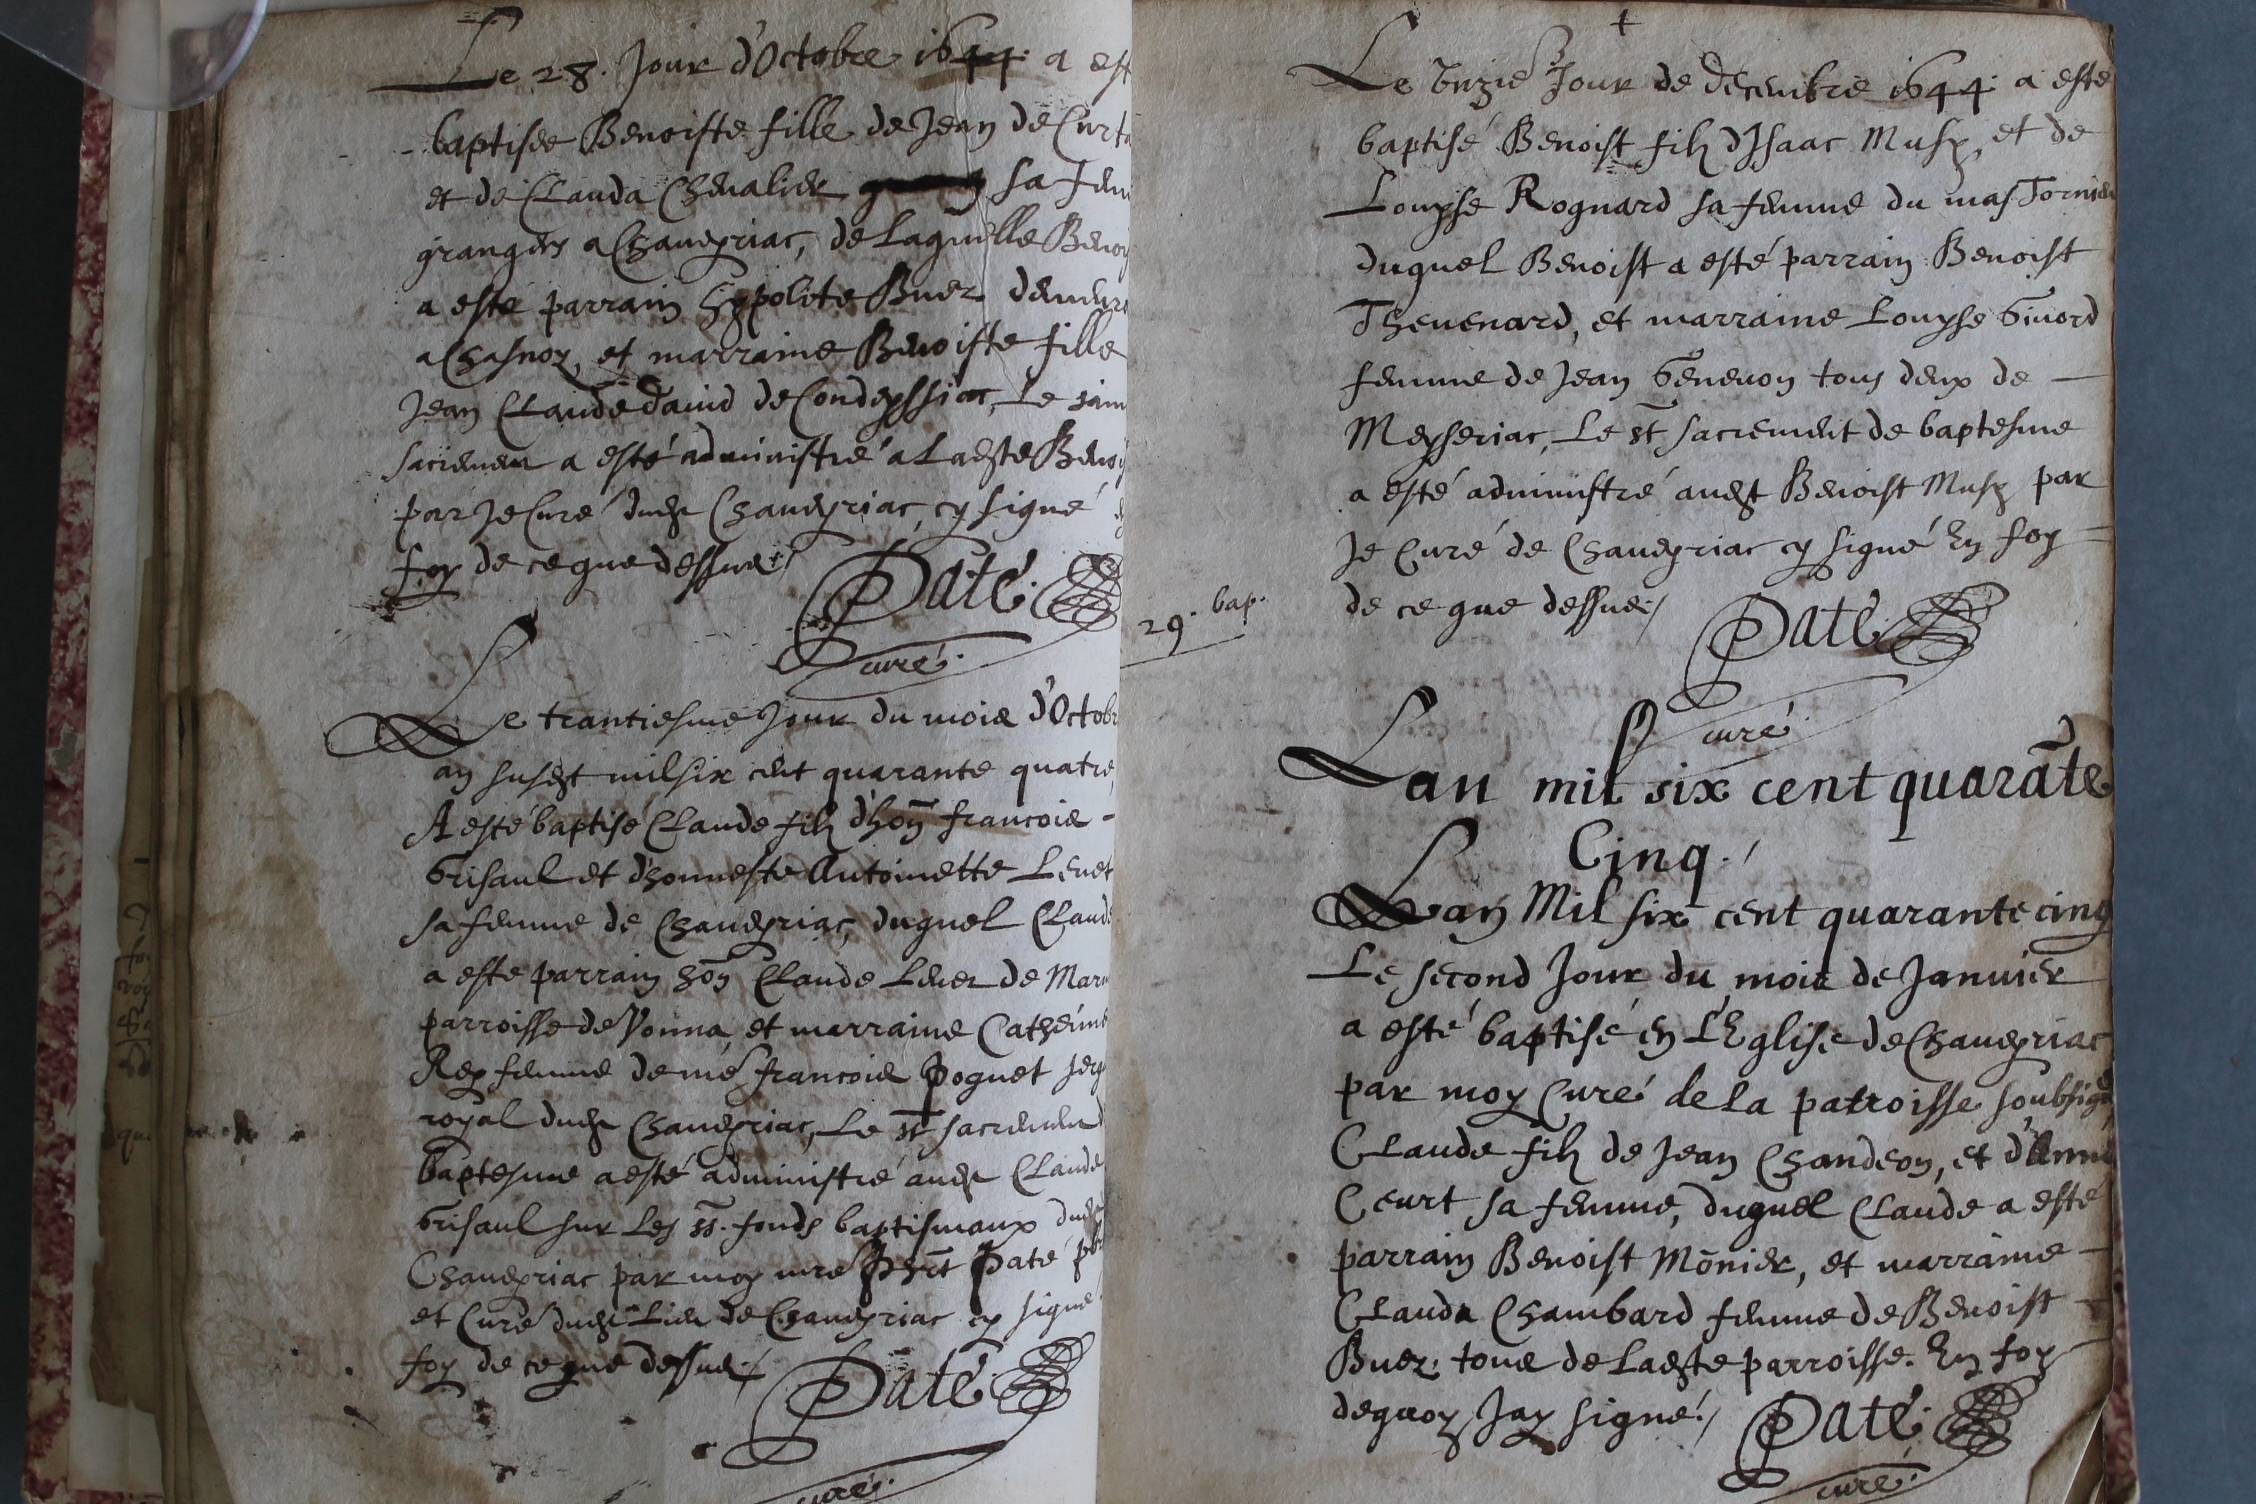 Le 28. Jour d'Octobre 1644 a est
baptisee Benoiste fille de Jean de Curt
et de Clauda Chevalier sa fem
grangers a Chaveyriac, de laquelle Benoi
a esté parrain hypolite Buer demeura
a Chasnoy, et marraine Benoiste fille
Jean Claude david de Condeyssiat, Le sain
sacrement a esté administré a Ladte Benoi
par Je Curé dudt Chaveyriac, cy signé
foy de ce que dessus
Paté.
curé.
Le trantiesme Jour du mois d'Octob
an susdt mil six cent quarante quatre
A esté baptisé Claude filz d'hon francois -
Grisaul et d'honneste Antoinette Levet
sa femme de Chaveyriac, duquel Claud
a esté parrain hon Claude Levet de Mar
parroisse de Vonna, et marraine Catherine
Rey femme de me francois Poguet ser
royal dudt Chaveyriac, Le st sacrement
baptesme a esté administré audt Claude
Grisaul sur Les ss. fonds baptismaux dud
Chaveyriac par moy mre Paté pb
et Curé dudt Lieu de Chaveyriac cy signé
foy de ce que dessus
Paté
curé.
29. bap.
Le Jour de decembre 1644 a esté
baptisé Benoist filz d'Isaac Musy, et de
Louyse Rognard sa femme du mas Tornier
duquel Benoist a esté parrain Benoist
Thevenard, et marraine Louyse Givord
femme de Jean Genevon tous deux de -
Meyseriac, Le st sacrement de baptesme
a esté administré audt Benoist Musy par
Je Curé de Chaveyriac cy signé En foy
de ce que dessus
Paté
curé
Lan mil six cent quarãte
Cinq.
Lan Mil six cent quarante cinq
Le second Jour du mois de Janvier
a esté baptisé en L'Eglise de Chaveyriac
par moy Curé de la parroisse soubsigné
Claude filz de Jean Chandeon, et d'Anne
Ceurt sa femme, duquel Claude a esté
parrain Benoist Mõnier, et marraine -
Clauda Chambard femme de Benoist -
Buer tous de Ladte parroisse. En foy
dequoy Jay signé.
Paté.
curé.